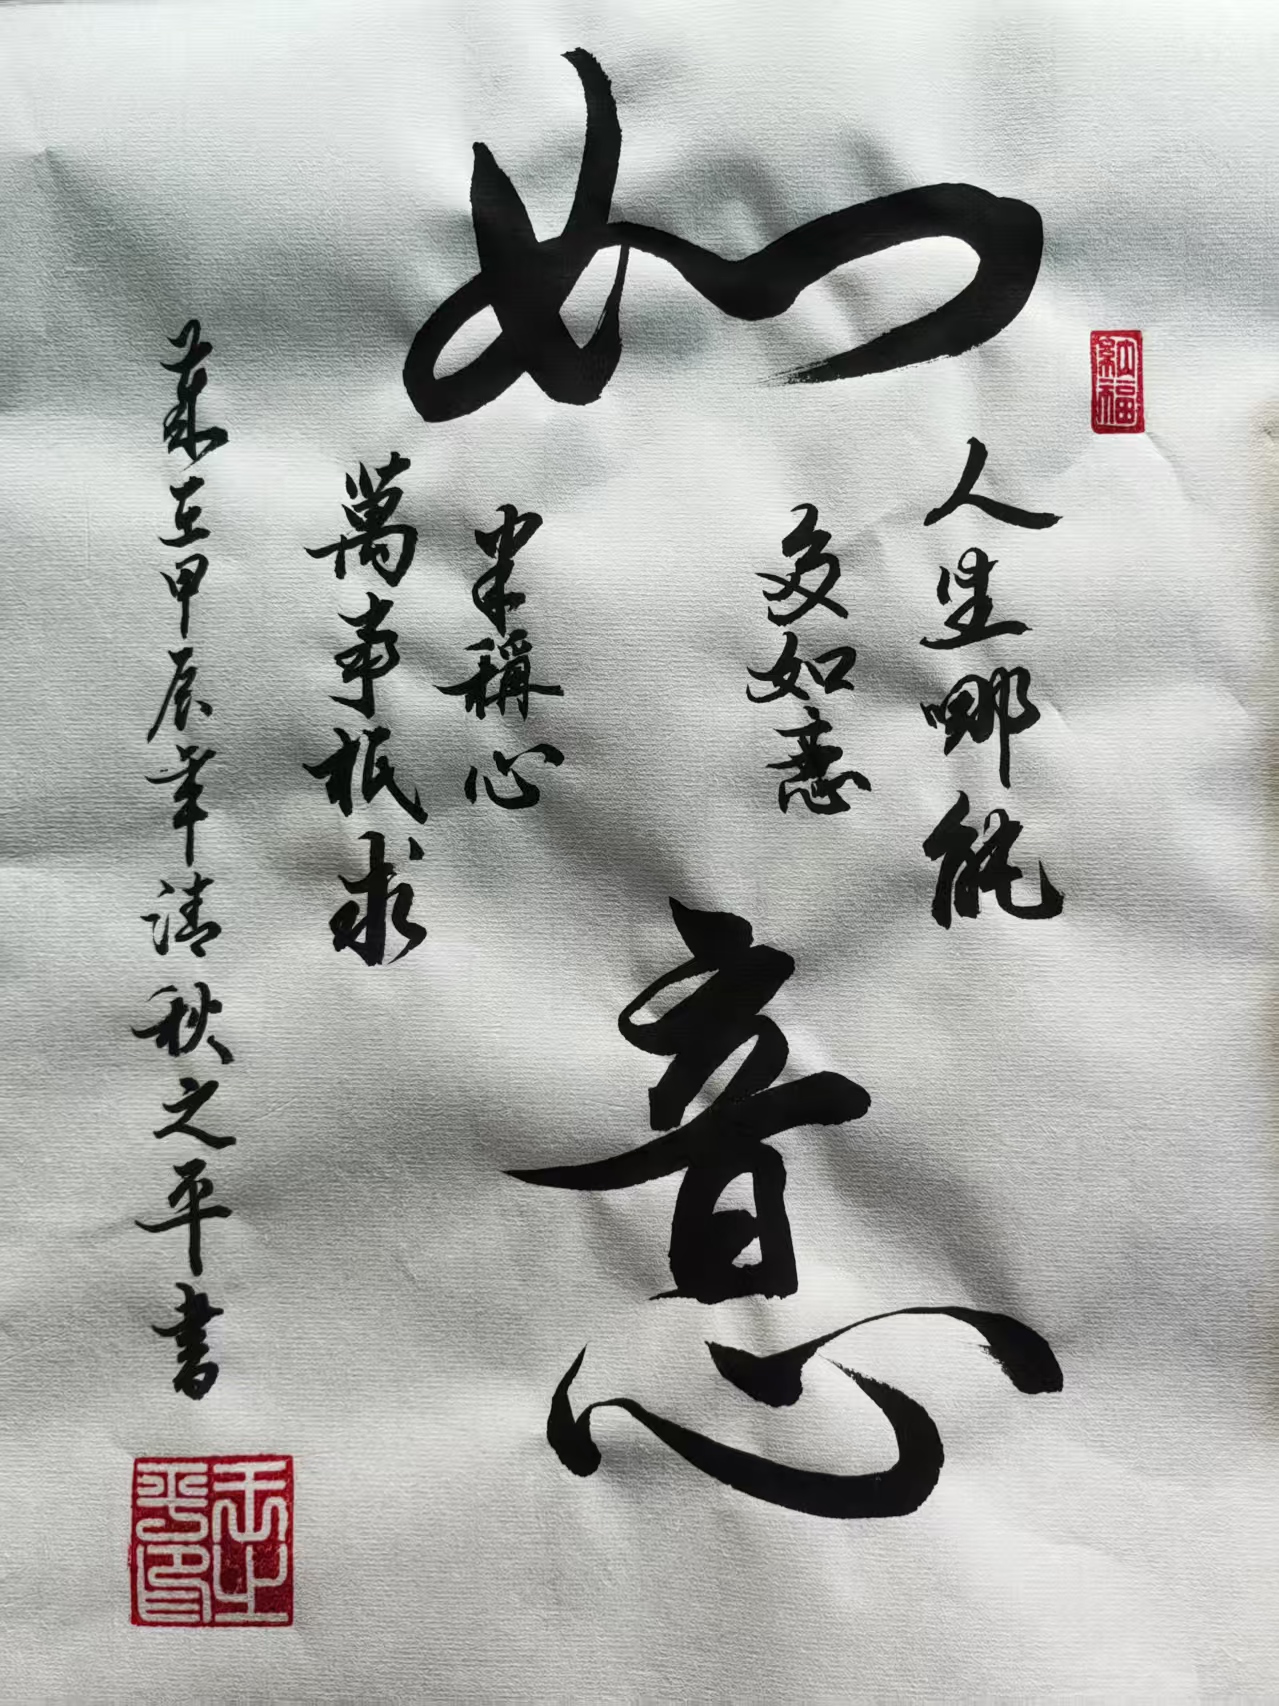 如意
納福
人生哪能
多如意
萬事祇求
半稱心
歲在甲辰年清秋之平書